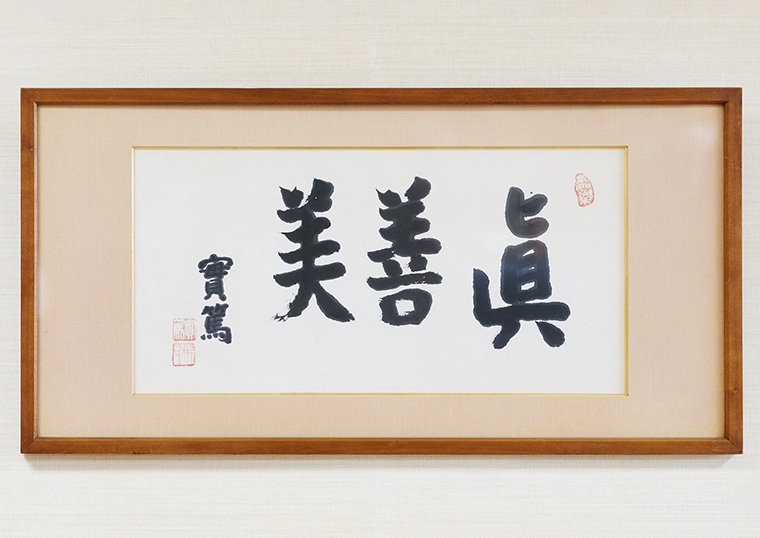 眞善美
實篤